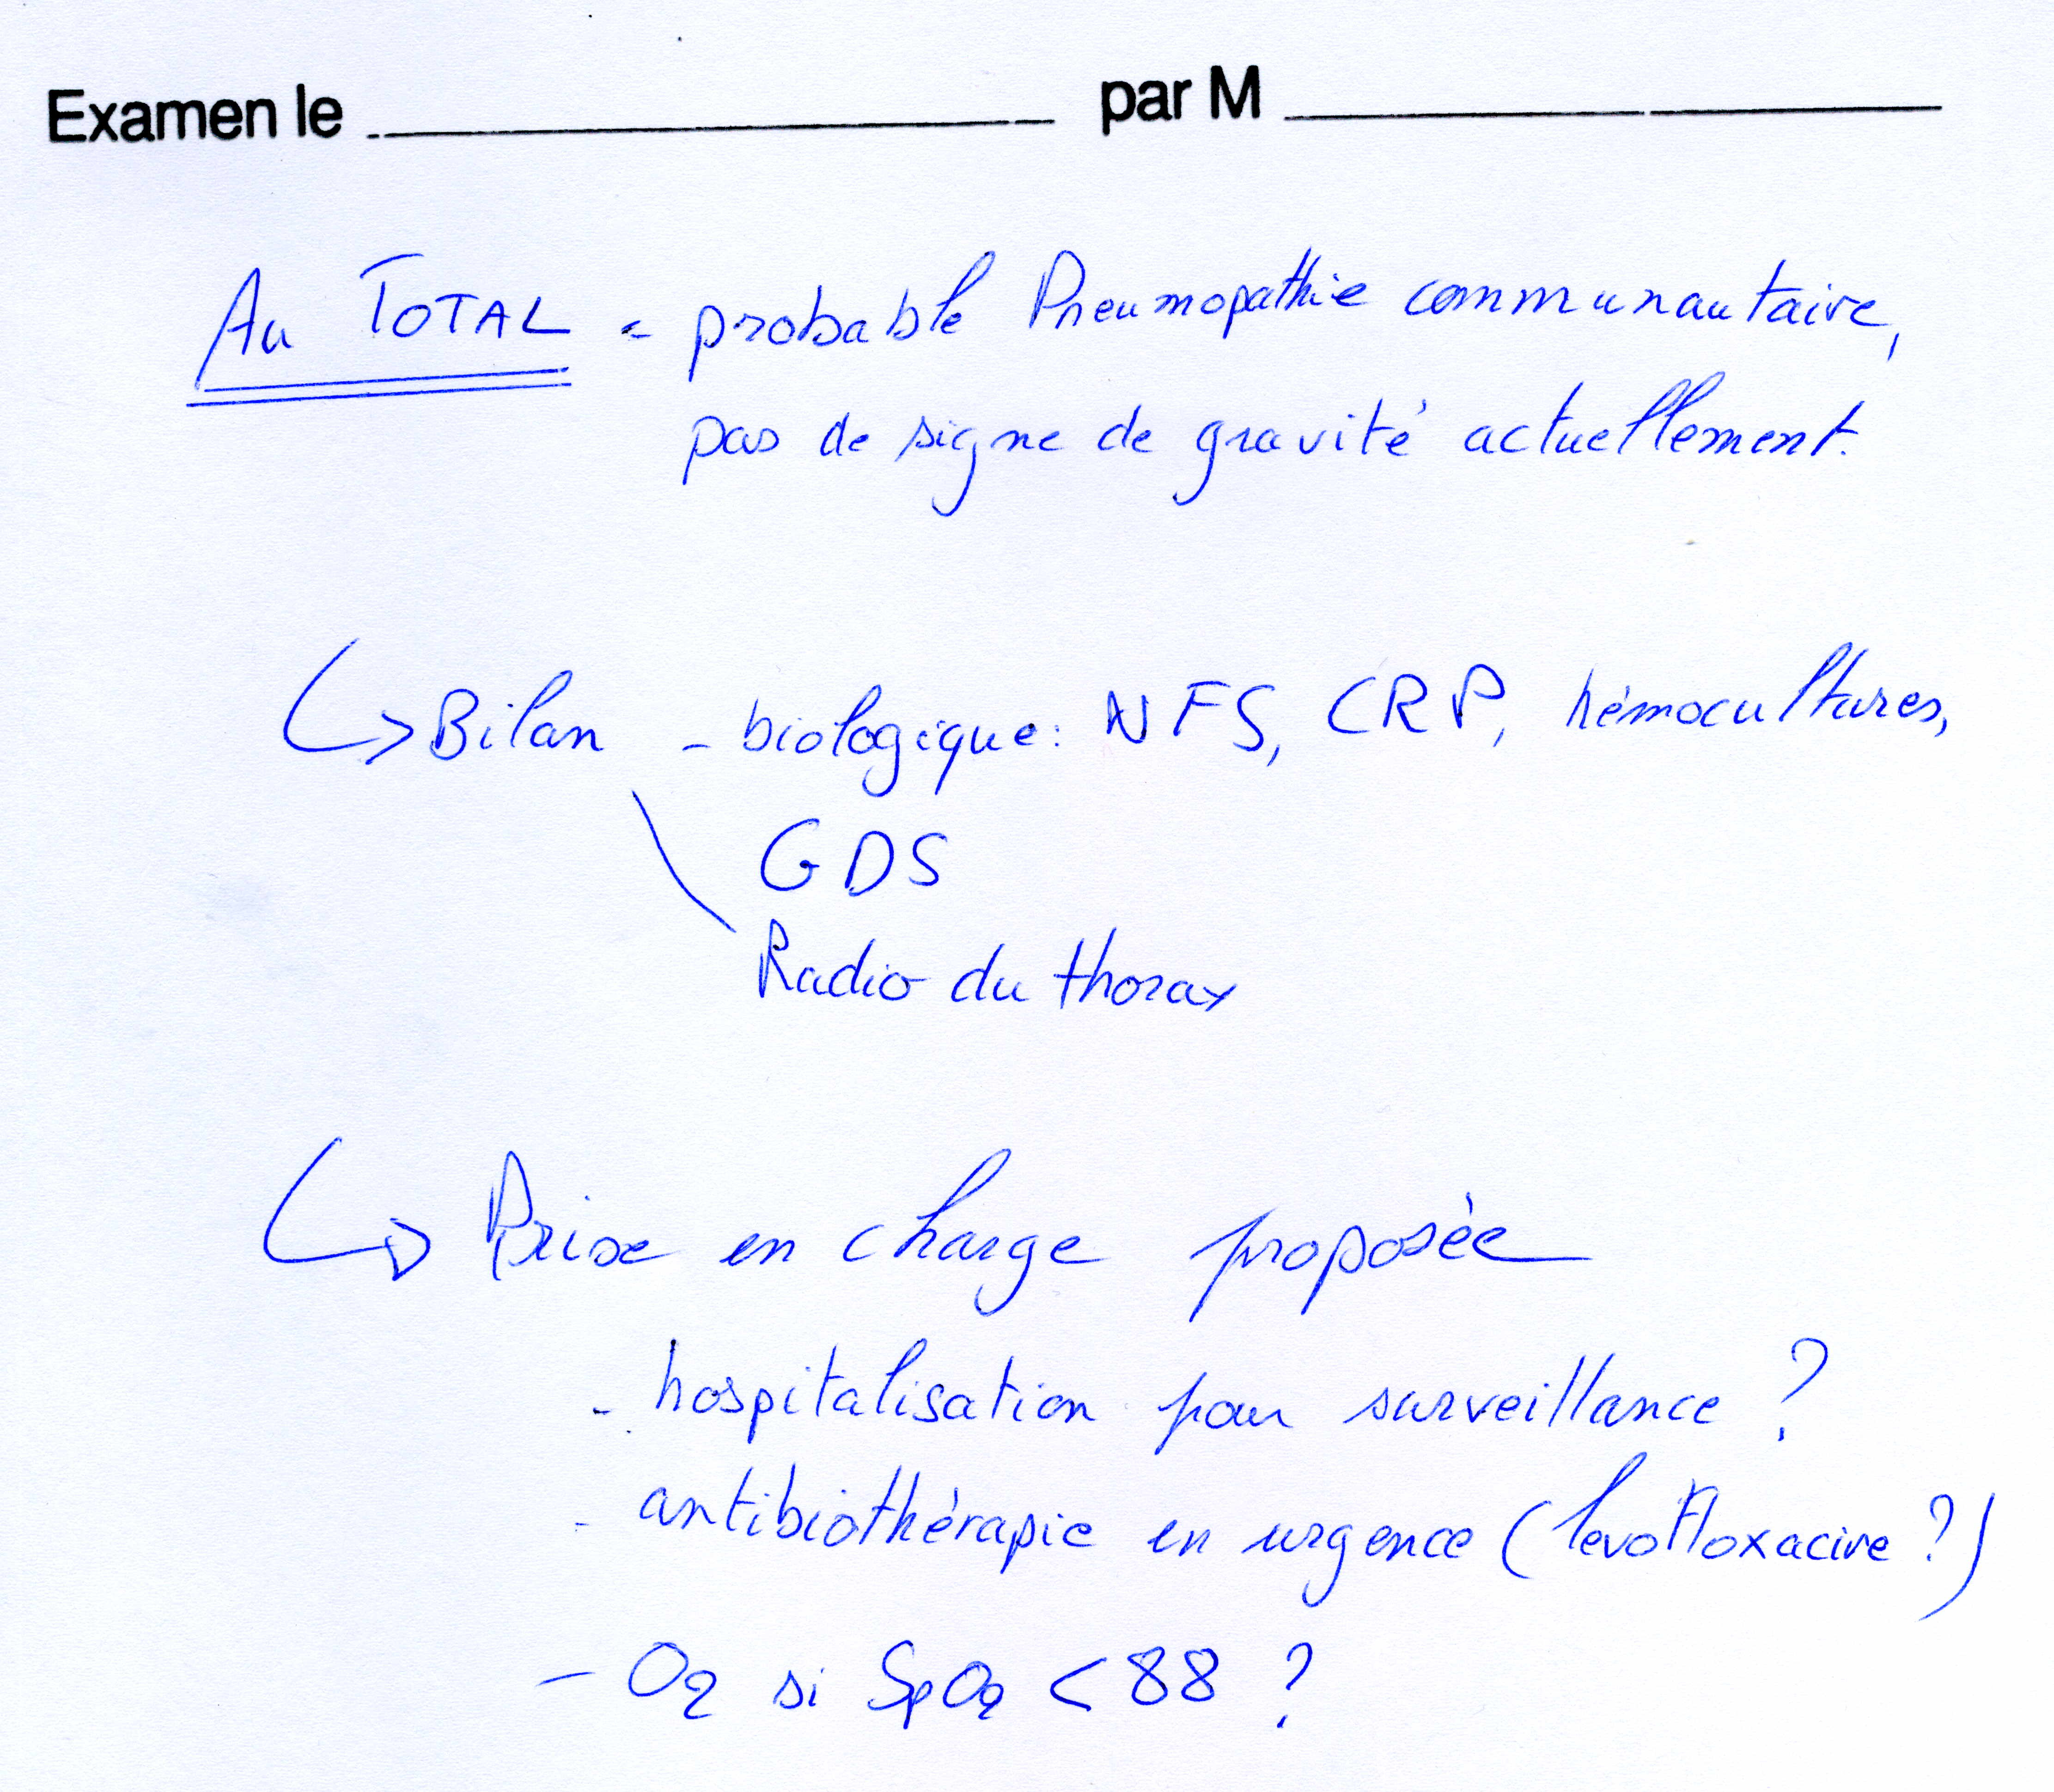 Examen le ____________________ par M ____________________
Au TOTAL = probable Pneumopathie communautaire,
pas de signe de gravité actuellement.
↳ Bilan - biologique : NFS, CRP, hémocultures,
GDS
\ Radio du thorax
↳ Prise en charge proposée
- hospitalisation pour surveillance ?
- antibiothérapie en urgence (levofloxacine ?)
- O2 si SpO2 < 88 ?